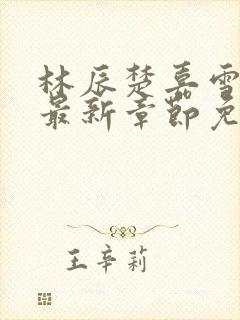 林辰楚嘉雪
最新章节免
王辛莉